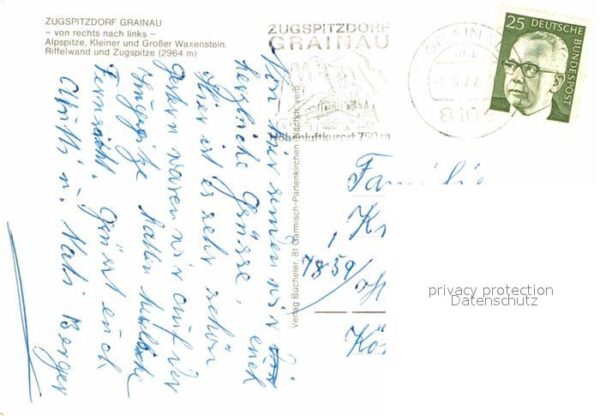 ZUGSPITZDORF GRAINAU
– von rechts nach links –
Alpspitze, Kleiner und Großer Waxenstein,
Riffelwand und Zugspitze (2964 m)
ZUGSPITZDORF
GRAINAU
Höhenluftkurort 750 m
25 DEUTSCHE BUNDESPOST
Von hier senden wir
euch
herzliche Grüsse.
Hier ist es sehr schön
Gestern waren wir auf der
Zugspitze hatten herrliche
Fernsicht. Grüsst euch
u. Berger
Verlag Bücheler, 81 Garmisch-Partenkirchen
Familie
7859
privacy protection
Datenschutz